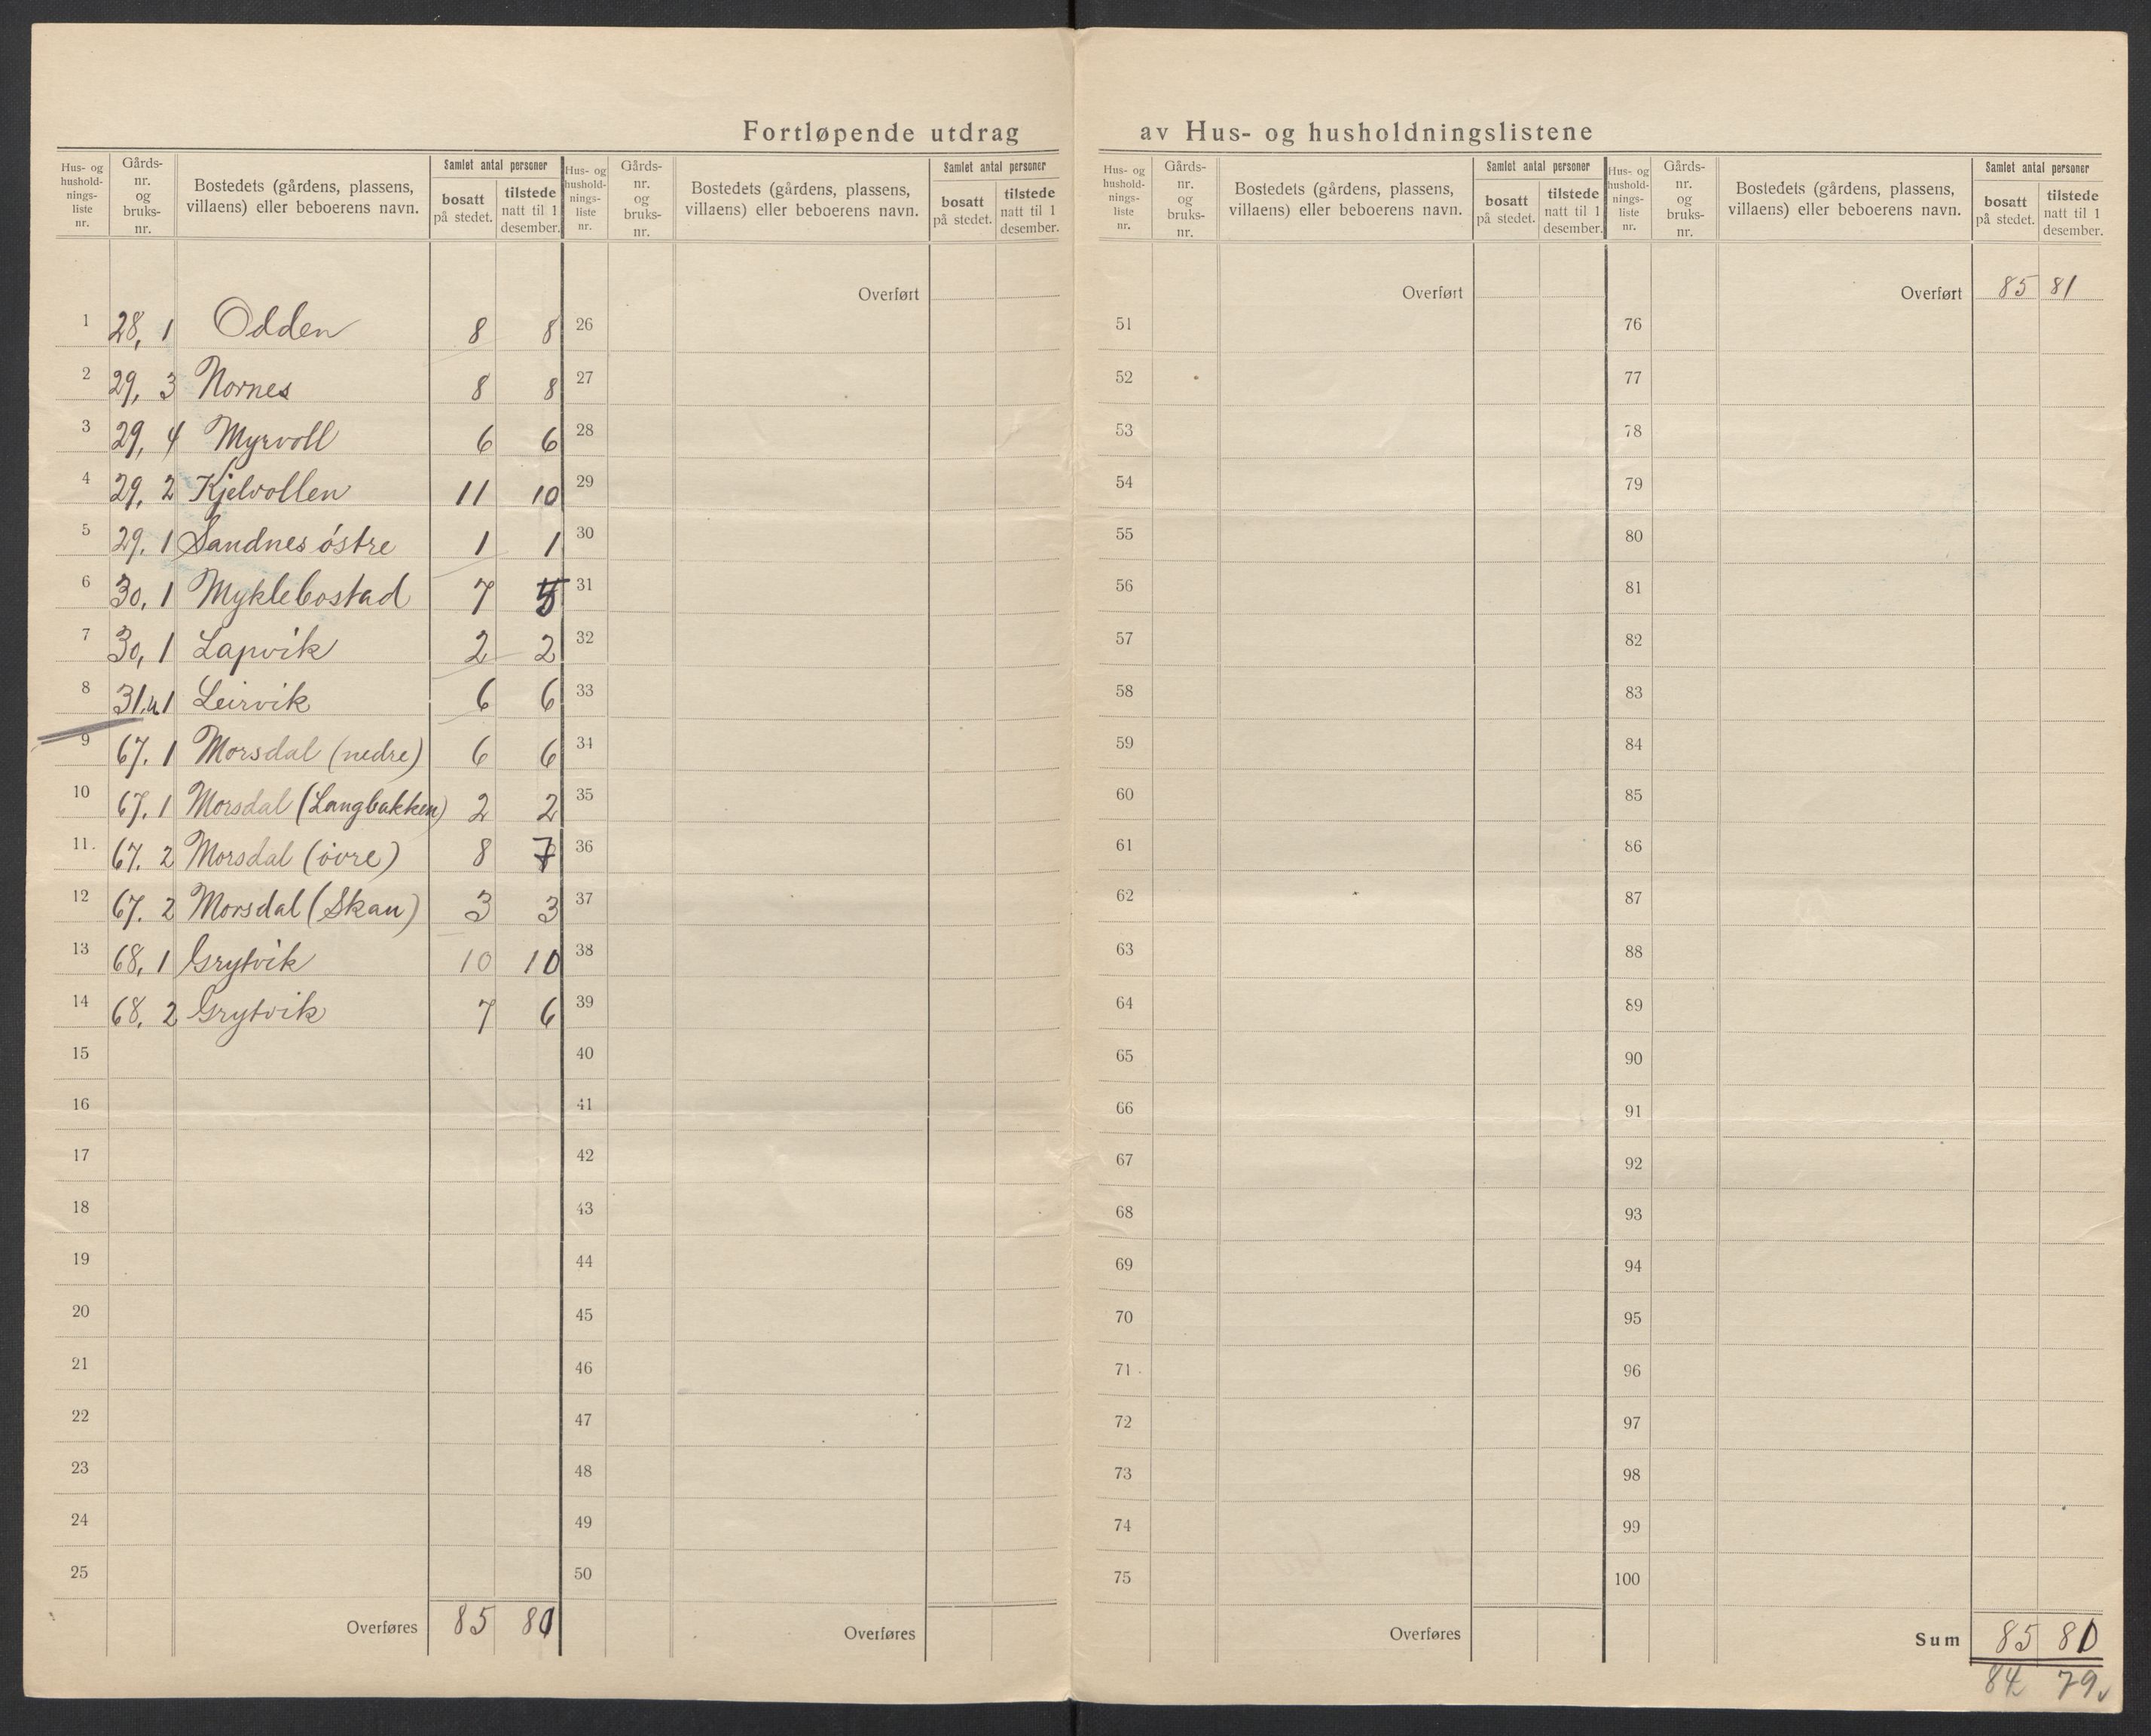 Fortløpende utdrag av Hus- og husholdningslistene
Hus- og hushold- nings- liste nr.
Gårds- nr. og bruks- nr.
Bostedets (gårdens, plassens, villaens) eller beboerens navn.
Samlet antal personer
bosatt på stedet.
tilstede natt til 1 desember.
1 28, 1 Odden 8 8
2 29, 3 Nornes 8 8
3 29, 4 Myrvoll 6 6
4 29, 2 Kjelvollen 11 10
5 29. 1 Sandnes östre 1 1
6 30, 1 Myklebostad 7 5
7 30, 1 Lapvik 2 2
8 31. 1 Leirvik 6 6
9 67. 1 Morsdal (nedre) 6 6
10 67. 1 Morsdal (Langbakken) 2 2
11. 67. 2 Morsdal (övre) 8 7
12 67. 2 Morsdal (Skau) 3 3
13 68, 1 Grytvik 10 10
14 68, 2 Grytvik 7 6
15
16
17
18
19
20
21
22
23
24
25
Overføres 85 80
Hus- og hushold- nings- liste nr.
Gårds- nr. og bruks- nr.
Bostedets (gårdens, plassens, villaens) eller beboerens navn.
Samlet antal personer
bosatt på stedet.
tilstede natt til 1 desember.
Overført
26
27
28
29
30
31
32
33
34
35
36
37
38
39
40
41
42
43
44
45
46
47
48
49
50
Overføres
Hus- og hushold- nings- liste nr.
Gårds- nr. og bruks- nr.
Bostedets (gårdens, plassens, villaens) eller beboerens navn.
Samlet antal personer
bosatt på stedet.
tilstede natt til 1 desember.
Overført
51
52
53
54
55
56
57
58
59
60
61
62
63
64
65
66
67
68
69
70
71
72
73
74
75
Overføres
Hus- og hushold- nings- liste nr.
Gårds- nr. og bruks- nr.
Bostedets (gårdens, plassens, villaens) eller beboerens navn.
Samlet antal personer
bosatt på stedet.
tilstede natt til 1 desember.
Overført 85 81
76
77
78
79
80
81
82
83
84
85
86
87
88
89
90
91
92
93
94
95
96
97
98
99
100
Sum 85 80
84 79